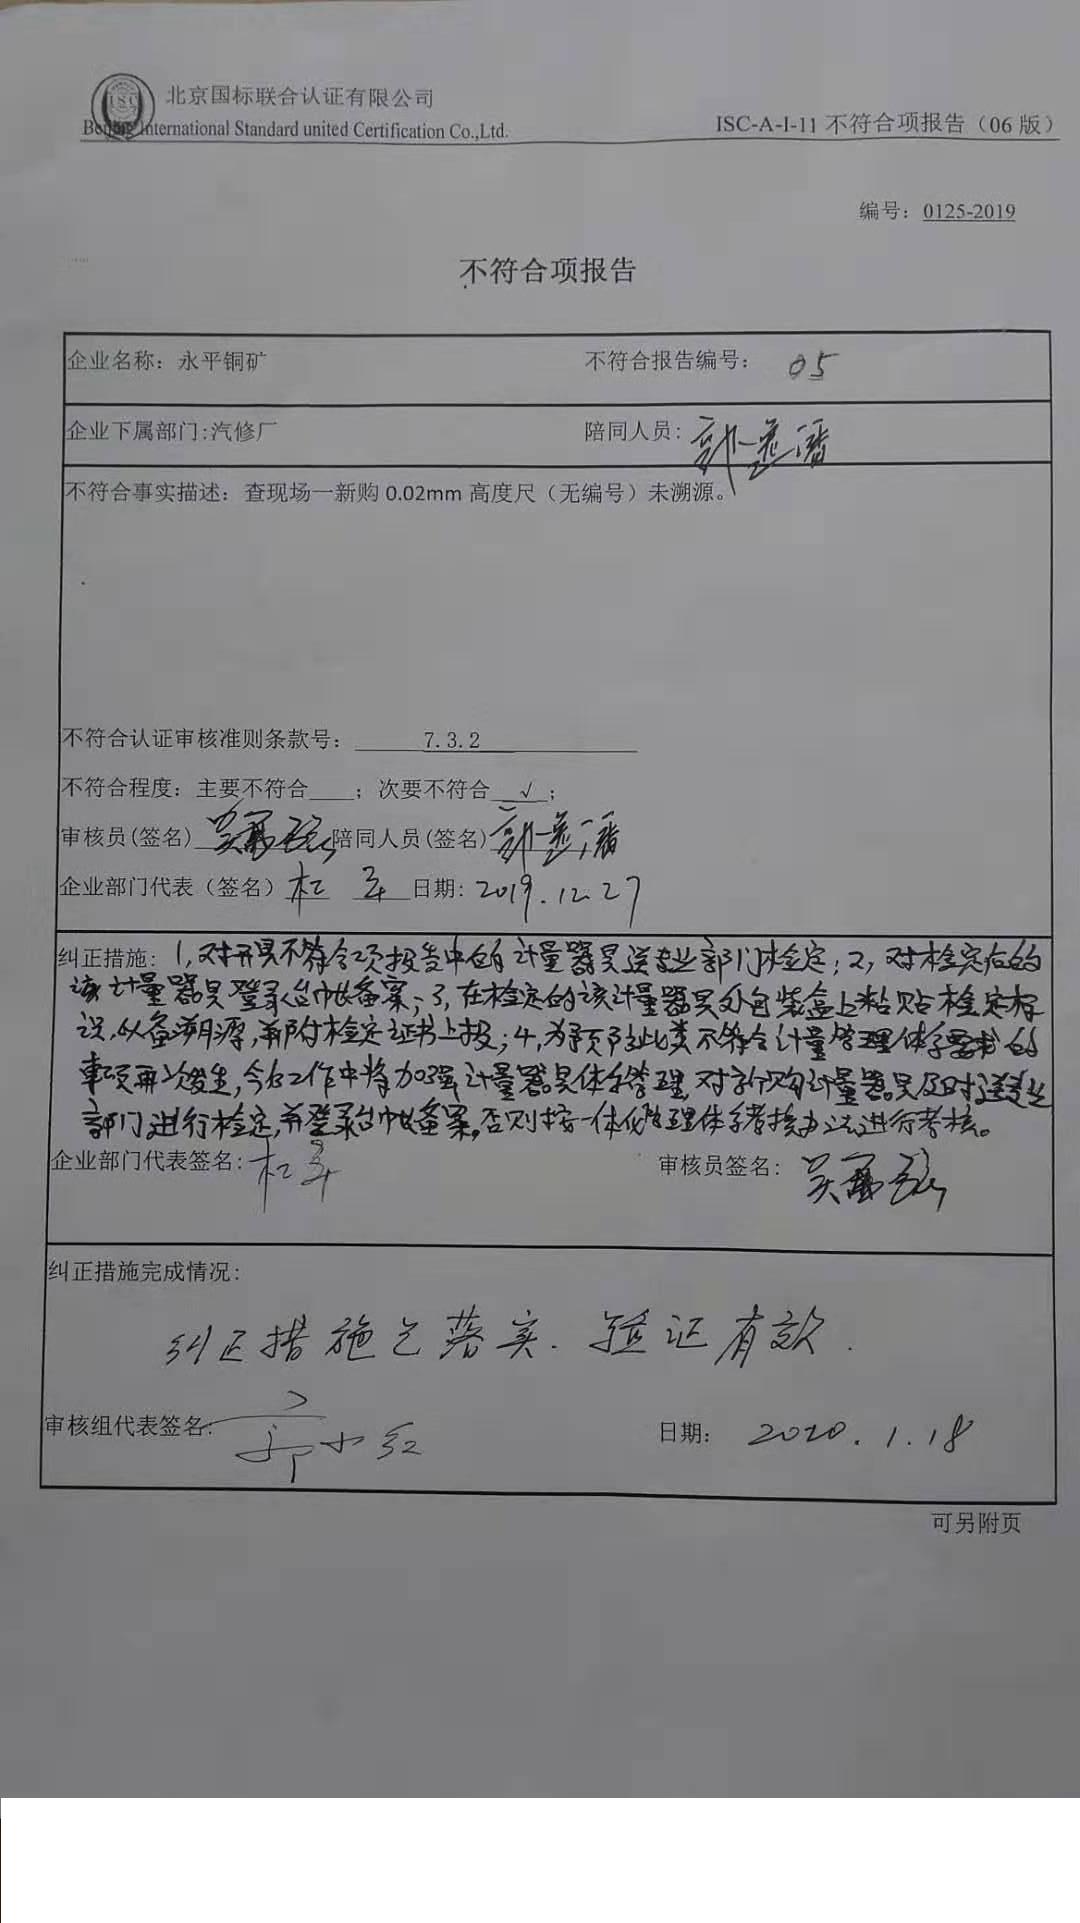 北京国标联合认证有限公司
Beijing International Standard united Certification Co.,Ltd.
ISC-A-I-11 不符合项报告（06 版）
编号：0125-2019
不符合项报告
企业名称：永平铜矿 不符合报告编号： 05
企业下属部门:汽修厂 陪同人员:
不符合事实描述：查现场一新购 0.02mm 高度尺（无编号）未溯源。
不符合认证审核准则条款号： 7.3.2
不符合程度：主要不符合 ；次要不符合 √ ；
审核员(签名) 陪同人员(签名)
企业部门代表（签名） 日期: 2019.12.27
纠正措施: 1,对开具不符合项报告中的计量器具送专业部门检定;2,对检定后的
该计量器具登录台帐备案;3,在检定的该计量器具外包装盒上粘贴检定标
识,以备溯源,并附检定证书上报;4,为预防此类不符合计量管理体系要求的
事项再次发生,今后工作中将加强计量器具体系管理,对新购计量器具及时送专业
部门进行检定,并登录台帐备案。否则按一体化管理体系考核办法进行考核。
企业部门代表签名: 审核员签名:
纠正措施完成情况:
纠正措施已落实.验证有效.
审核组代表签名: 郭小红 日期: 2020.1.18
可另附页